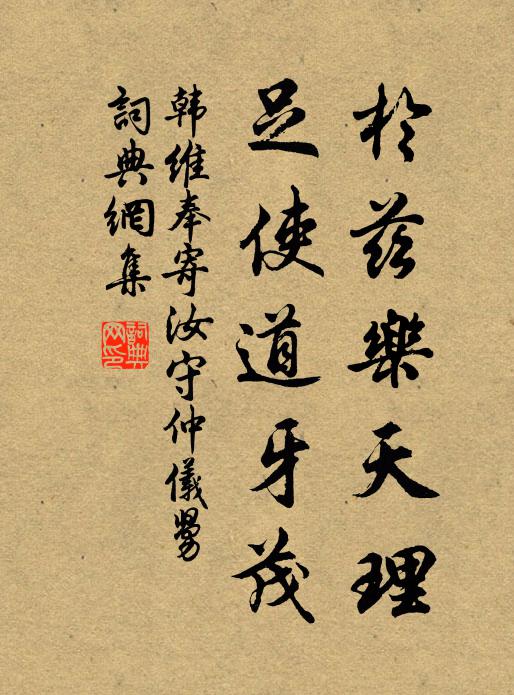 於茲樂天理
足使道牙茂
韩維奉寄汝守仲儀舅
詞典網集
詞典网印